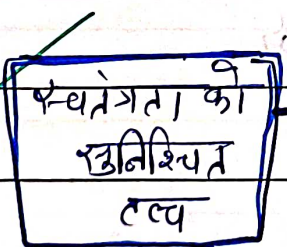 स्वतंत्रता को
सुनिश्चित
तत्व